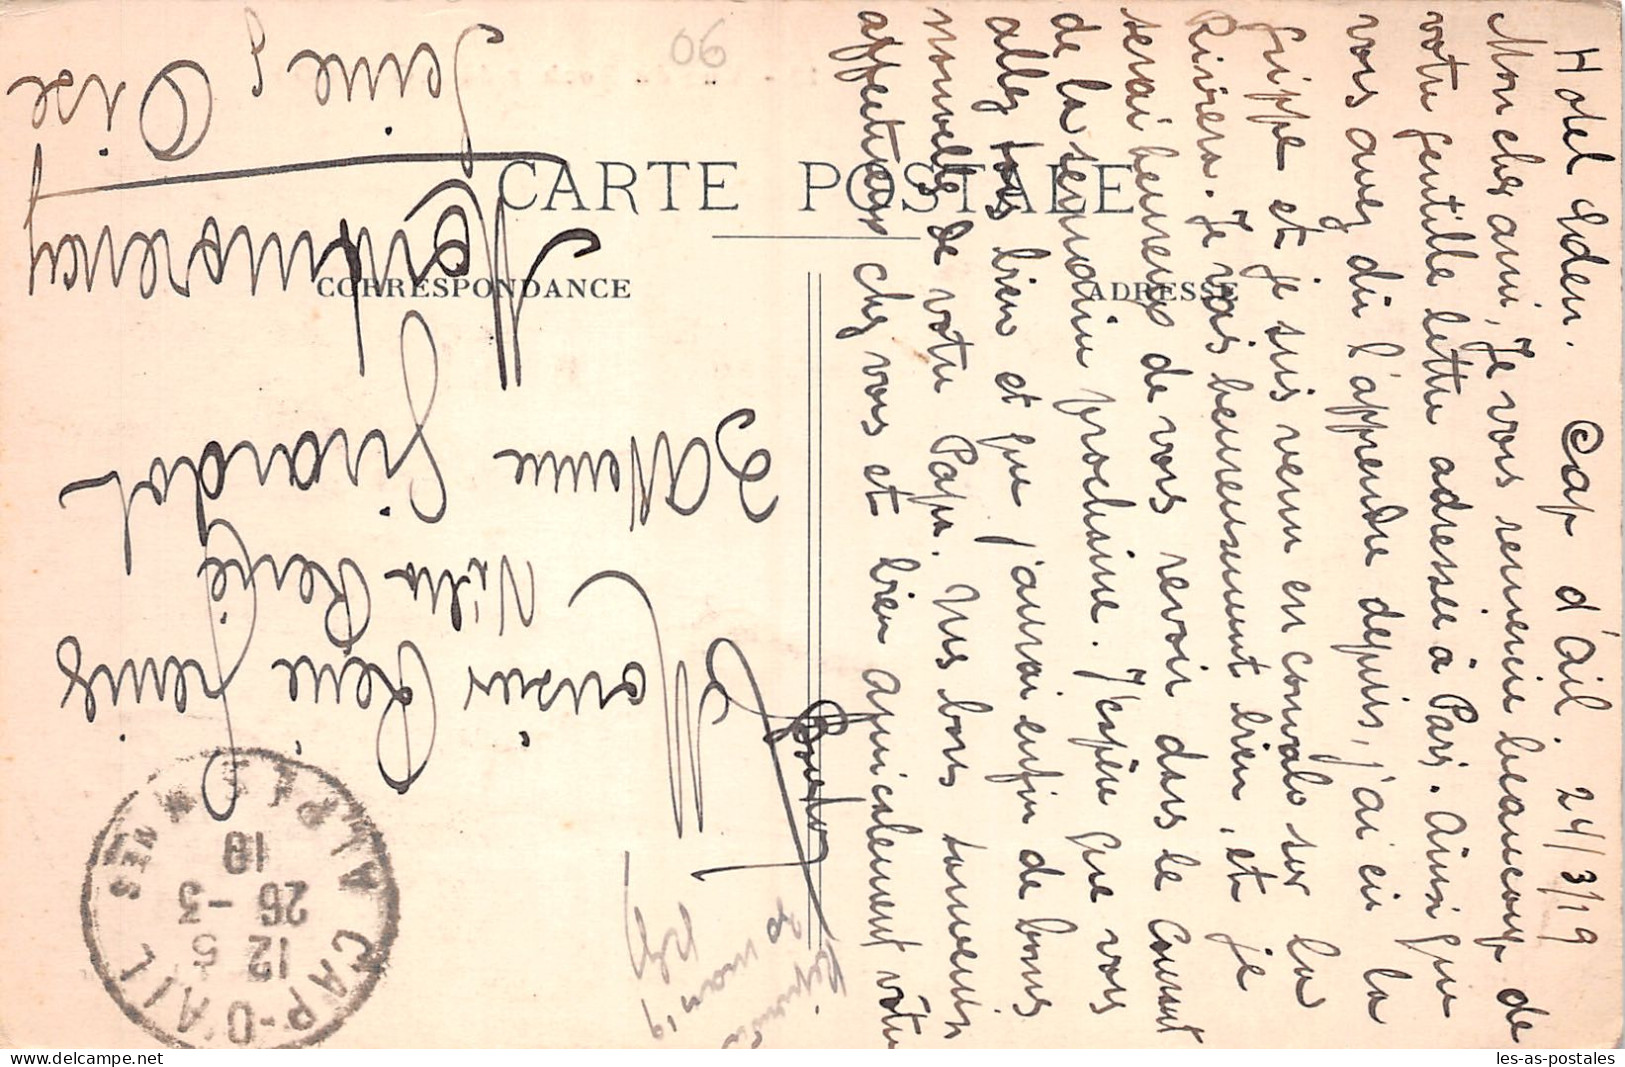 Hotel Eden. Cap d'Ail. 24/3/19
Mon cher ami, Je vous remercie beaucoup de
votre gentille lettre adressée à Paris. Ainsi que
vous avez dû l'apprendre depuis, j'ai eu la
grippe et je suis venu en convalo sur la
Riviera. Je vais heureusement bien, et je
serai heureux de vous revoir dans le courant
de la semaine prochaine. J'espère que vous
allez tous bien et que j'aurai enfin de bonnes
nouvelles de votre Papa. Mes bons souvenirs
affectueux chez vous et bien amicalement vôtre
CARTE POSTALE
CORRESPONDANCE
ADRESSE
Monsieur René
Villa René
3 Avenue Girardot
Montmorency
Seine & Oise
CAP-D'AIL ALPES MMES
12 5
26 - 3
19
06
mars 19
les-as-postales